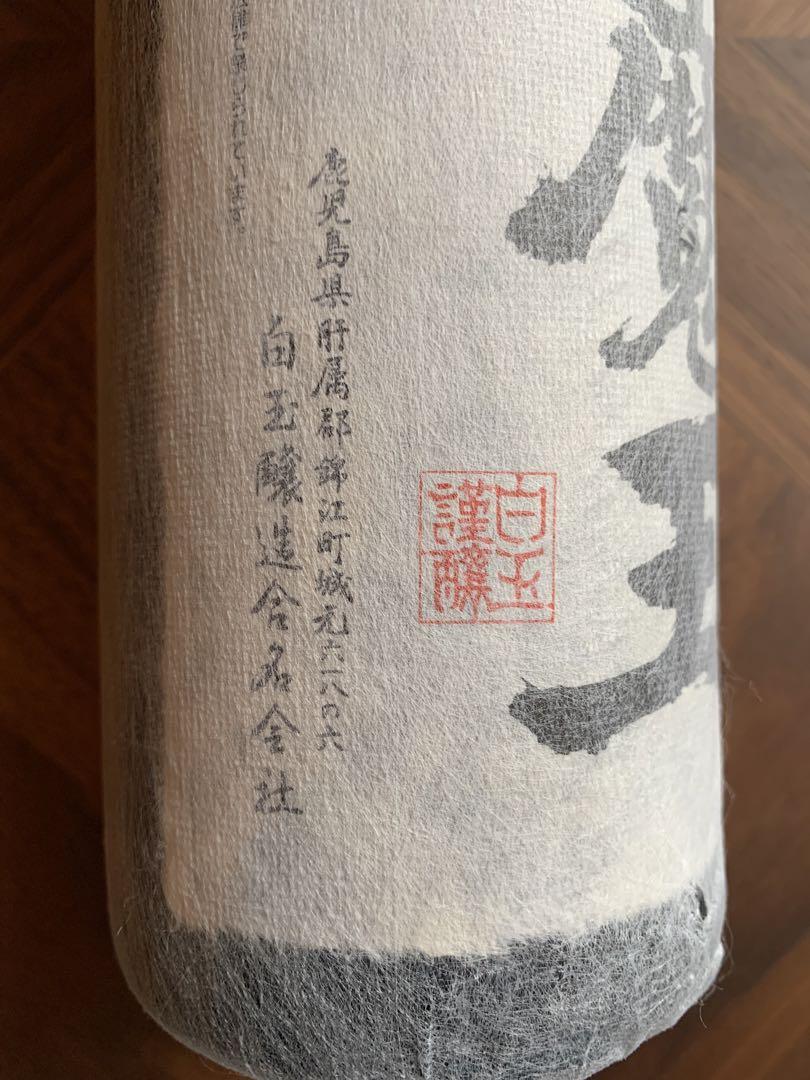 魔王
白玉
謹醸
鹿児島県肝属郡錦江町城元六一八の六
白玉醸造合名会社
られています。